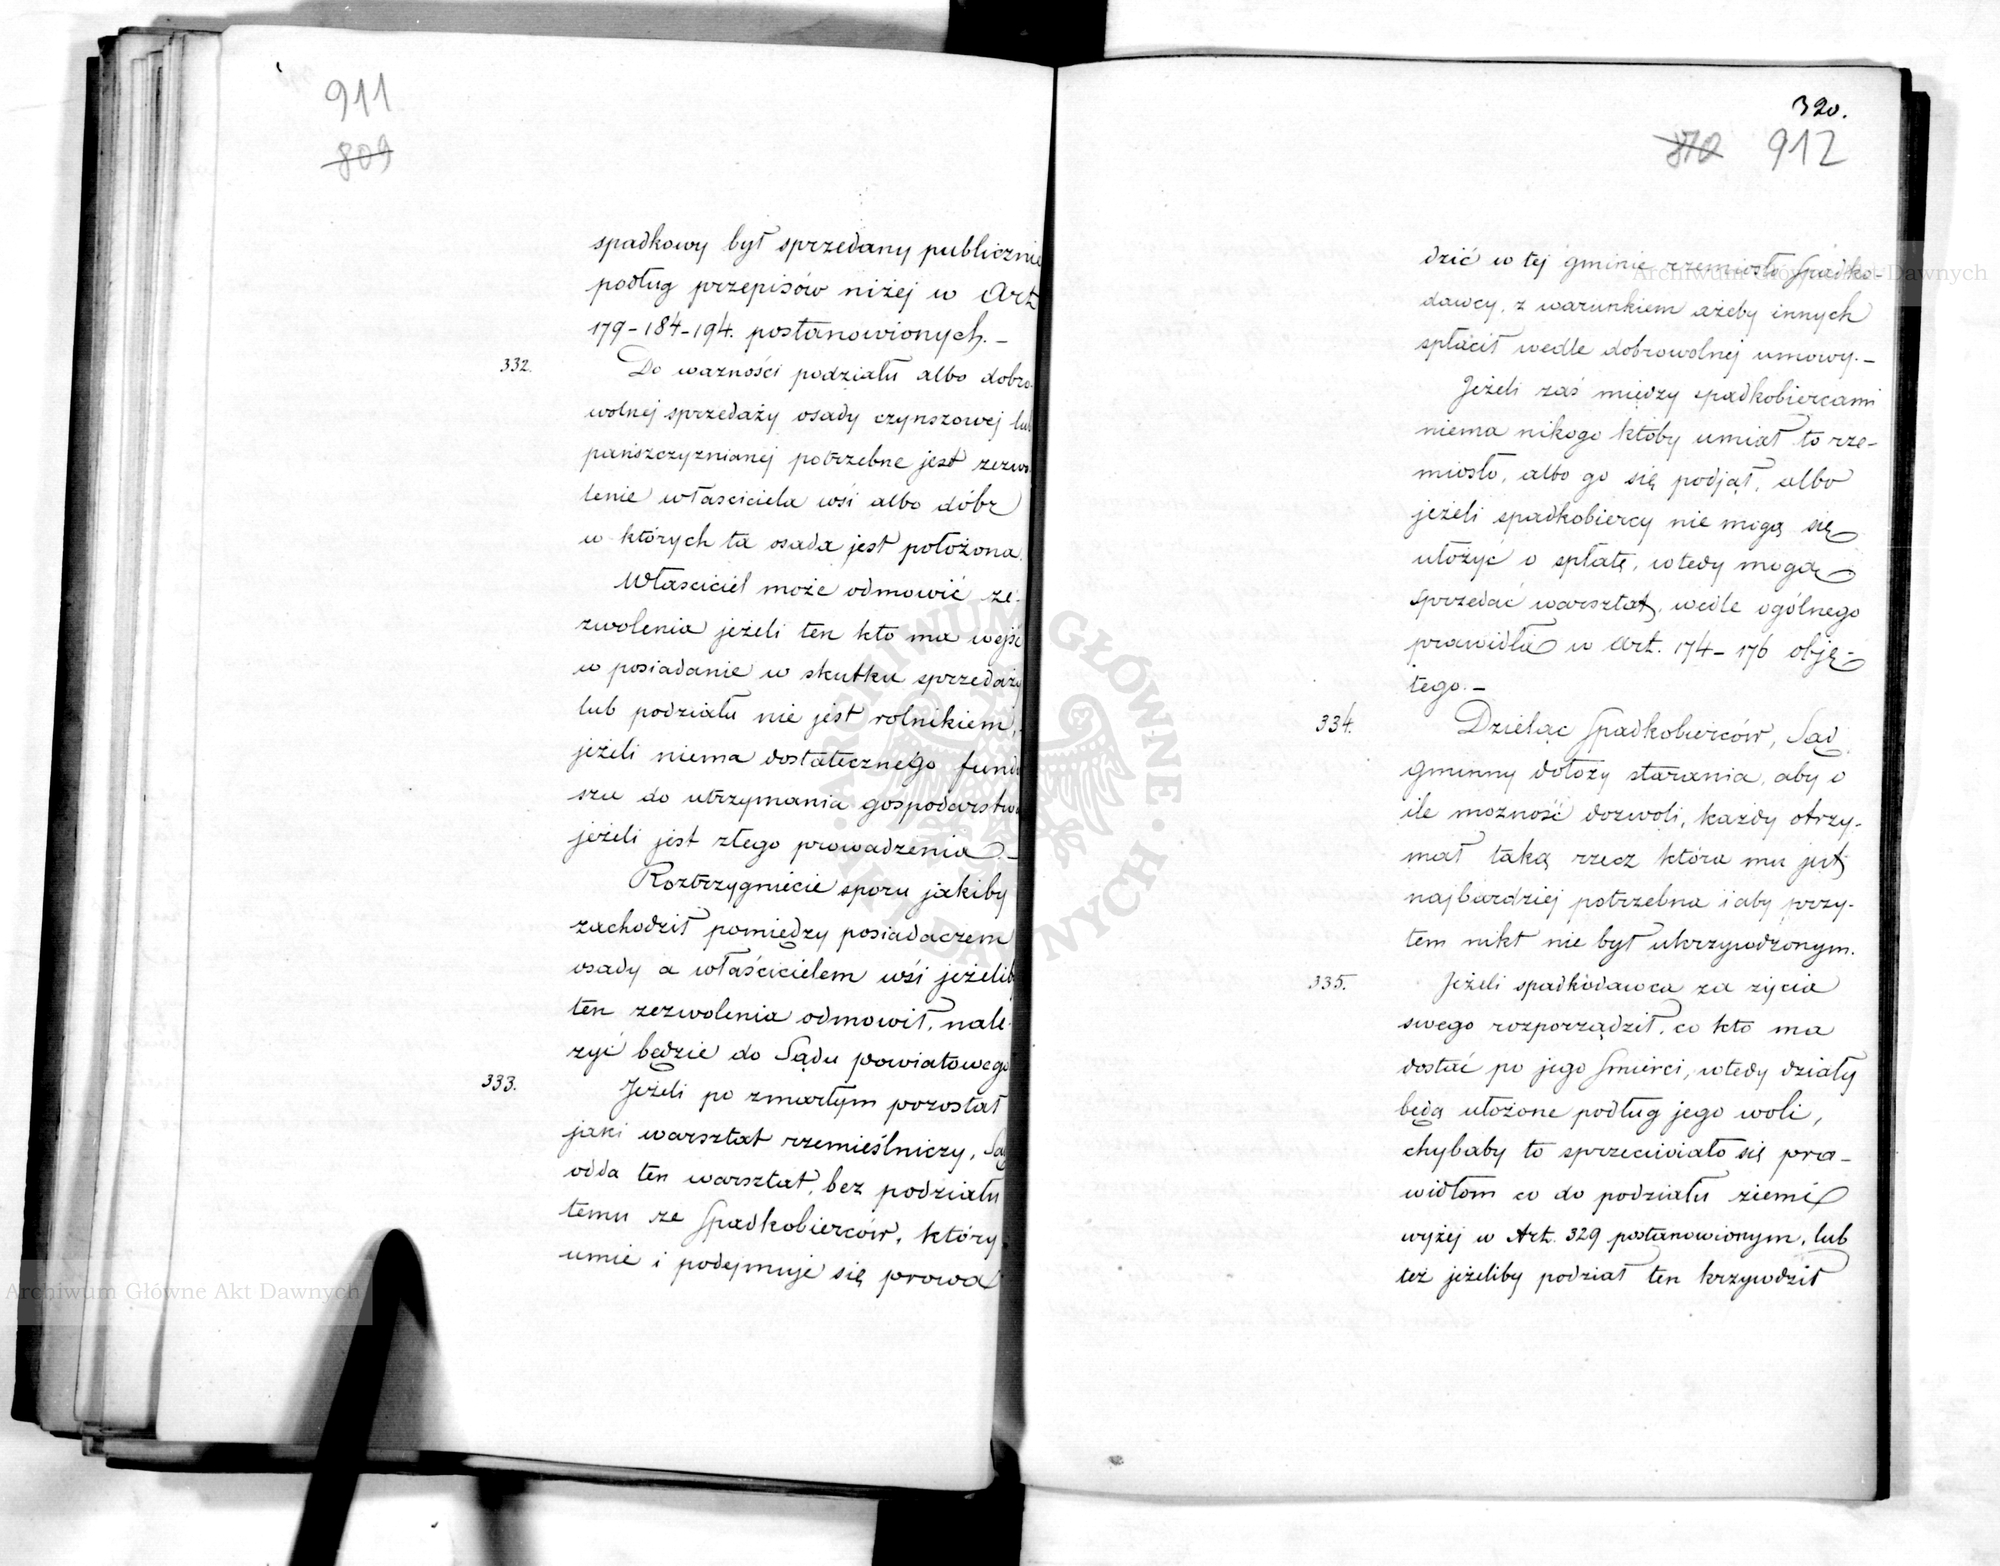 911
809
spadkowy był sprzedany publicznie
podług przepisów niżej w Art
179-184-194. postanowionych. –
332.
Do ważności podziału albo dobro
wolnej sprzedaży osady czynszowej lub
pańszczyznianej potrzebne jest zezwo
lenie właściciela wsi albo dóbr
w których ta osada jest położona.
Właściciel może odmowić ze-
zwolenia jeżeli ten kto ma wejść
w posiadanie w skutku sprzedaży
lub podziału nie jest rolnikiem,
jeżeli niema dostatecznego fundu
szu do utrzymania gospodarstwa
jeżeli jest złego prowadzenia. –
Roztrzygnięcie sporu jakiby
zachodził pomiędzy posiadaczem
osady a właścicielem wsi jeżeliby
ten zezwolenia odmowił, nale-
żyć będzie do Sądu powiatowego
333.
Jeżeli po zmarłym pozostał
jaki warsztat rzemieślniczy, Sąd
odda ten warsztat, bez podziału
temu ze Spadkobierców, który
umie i podejmuje się prowa
320.
810 912
dzić w tej gminie rzemiosło Spadko-
dawcy, z warunkiem ażeby innych
spłacił wedle dobrowolnej umowy. –
Jeżeli zaś między spadkobiercami
niema nikogo któby umiał to rze-
miosło, albo go się podjął, albo
jeżeli spadkobiercy nie mogą się
ułożyc o spłatę, wtedy mogą
sprzedać warsztat, wedle ogólnego
prawidła w Art. 174-176 obję-
tego. –
334.
Dzieląc Spadkobierców, Sąd
gminny dołoży starania, aby o
ile możność dozwoli, każdy otrzy-
mał taką rzecz która mu jest
najbardziej potrzebna i aby przy-
tem nikt nie był ukrzywdzonym.
335.
Jeżeli spadkodawca za życia
swego rozporządził, co kto ma
dostać po jego śmierci, wtedy działy
będą ułożone podług jego woli,
chybaby to sprzeciwiało się pra-
widłom co do podziału ziemi
wyżej w Art. 329 postanowionym, lub
też jeżeliby podział ten krzywdził
Archiwum Główne Akt Dawnych
Archiwum Główne Akt Dawnych
ARCHIWUM GŁÓWNE AKT DAWNYCH